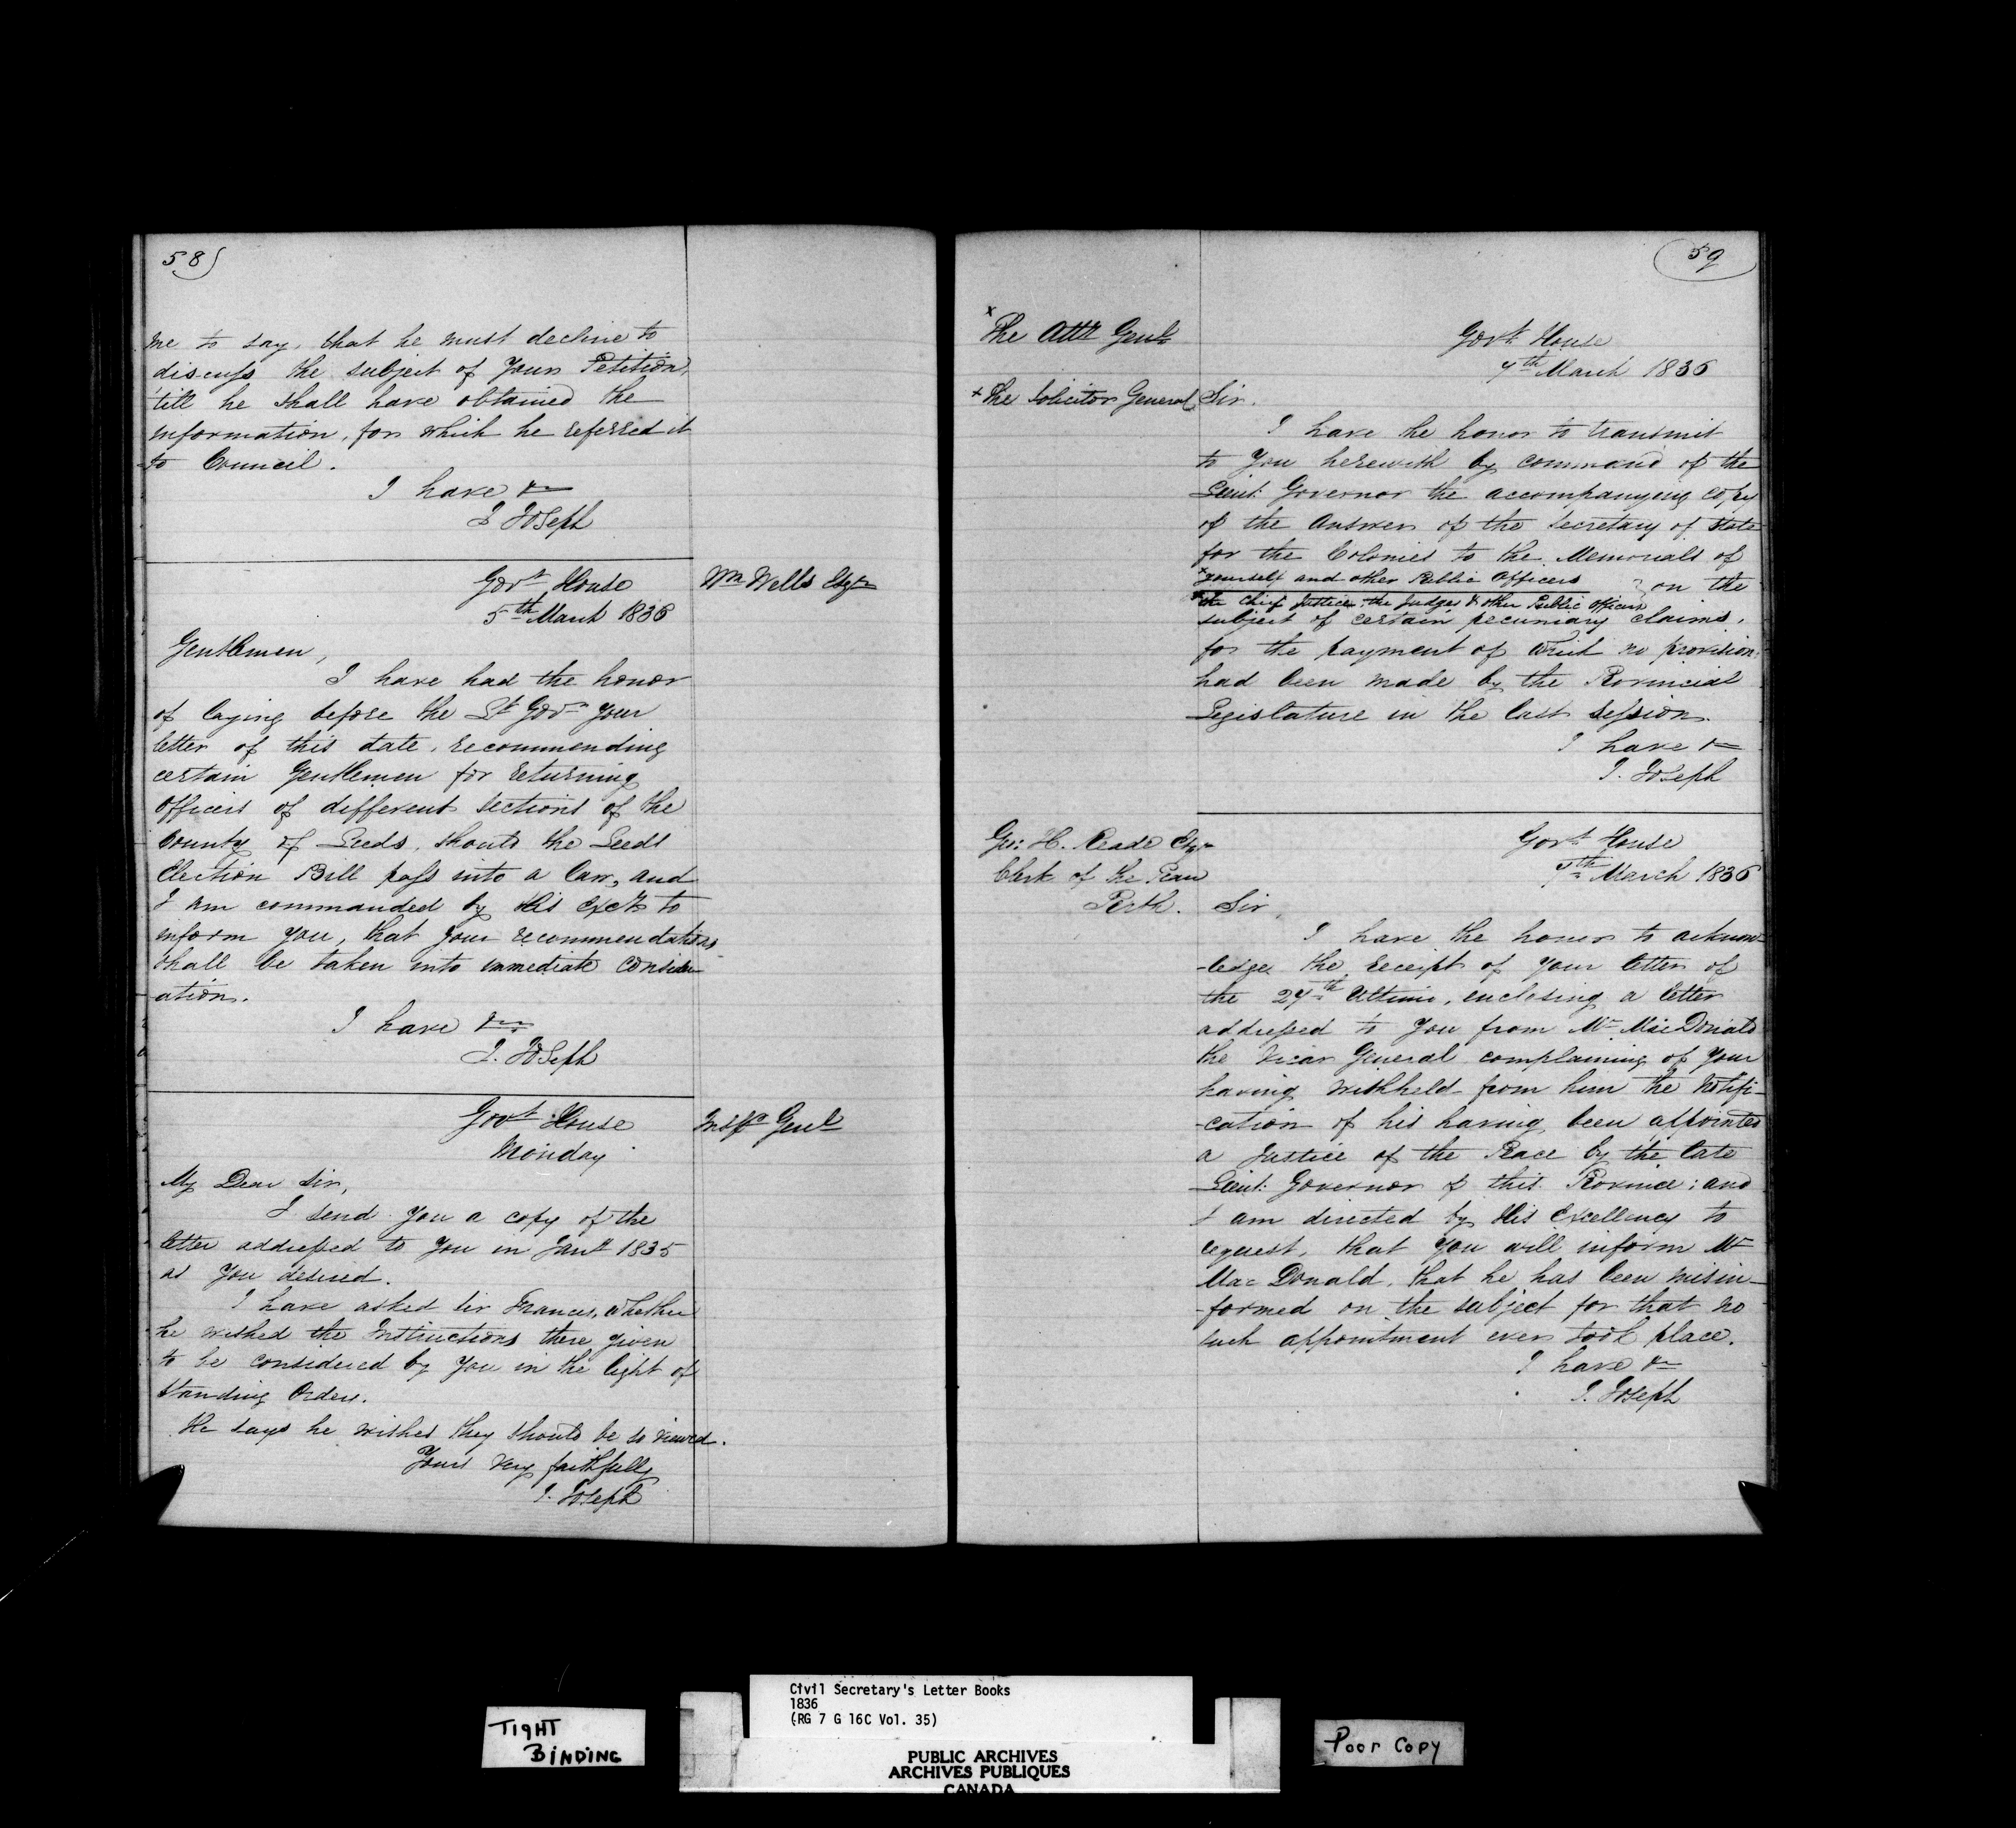 58
me to say, that he must decline to
discuss the subject of Your Petition,
till he shall have obtained the
information, for which he referred it
to Council.
I have &c
J Joseph
Govt House
5th March 1836
Wm Wells Esqre
Gentlemen,
I have had the honor
of laying before the Lt Govr your
letter of this date, recommending
certain Gentlemen for returning
officers of different sections of the
County of Leeds, should the Leeds
Election Bill pass into a Law, and
I am commanded by His Excy to
inform you, that your recommendations
shall be taken into immediate consider-
ation.
I have &c
J. Joseph
Govt House
Monday
Inspr Genl
My Dear Sir,
I send you a copy of the
letter addressed to you in Jany 1835
as you desired.
I have asked Sir Francis, whether
he wished the Instructions there given
to be considered by you in the light of
Standing Orders.
He says he wishes they should be so viewed.
Yours very faithfully
J. Joseph
59
x The Atty Genl
x The Solicitor General
Govt House
7th March 1836
Sir.
I have the honor to transmit
to You herewith by command of the
Lieut: Governor the accompanying copy
of the Answer of the Secretary of State
for the Colonies to the Memorials of
x yourself and other Public Officers
} on the
x the Chief Justice, the Judges & other Public Officers
subject of certain pecuniary claims,
for the payment of which no provision
had been made by the Provincial
Legislature in the last Session.
I have &c
J. Joseph
Geo: H. Reade Esqre
Clerk of the Peace
Perth.
Govt House
7th March 1836
Sir,
I have the honor to acknow-
-ledge the receipt of your letter of
the 24th Ultimo, enclosing a letter
addressed to you from Mr MacDonald
the Vicar General complaining of your
having withheld from him the notifi-
-cation of his having been appointed
a Justice of the Peace by the late
Lieut: Governor of this Province; and
I am directed by His Excellency to
request, that you will inform Mr
Mac Donald, that he has been misin-
-formed on the subject for that no
such appointment ever took place.
I have &c
J. Joseph
TIGHT
BINDING
Civil Secretary's Letter Books
1836
(RG 7 G 16C Vol. 35)
PUBLIC ARCHIVES
ARCHIVES PUBLIQUES
CANADA
Poor Copy